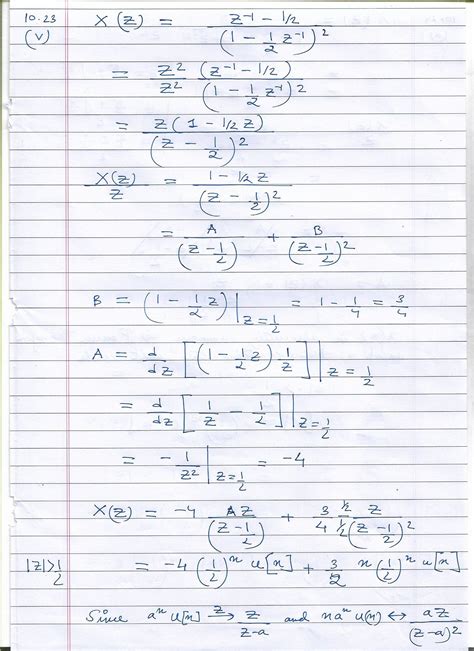 10.23 X(z) = (z⁻¹ - 1/2) / (1 - 1/2 z⁻¹)²
(v)
= z²/z² (z⁻¹ - 1/2) / (1 - 1/2 z⁻¹)²
= z(1 - 1/2 z) / (z - 1/2)²
X(z)/z = (1 - 1/2 z) / (z - 1/2)²
= A/(z - 1/2) + B/(z - 1/2)²
B = (1 - 1/2 z)|z=1/2 = 1 - 1/4 = 3/4
A = d/dz [(1 - 1/2 z) 1/z]|z=1/2
= d/dz [1/z - 1/2]|z=1/2
= -1/z²|z=1/2 = -4
X(z) = -4 Az/(z - 1/2) + 3/4 (1/2)/(1/2) z/(z - 1/2)²
|z|>1/2 = -4 (1/2)ⁿ u[n] + 3/2 n(1/2)ⁿ u[n]
Since aⁿ u[n] z→ z/(z-a) and naⁿ u(n) ↔ az/(z-a)²